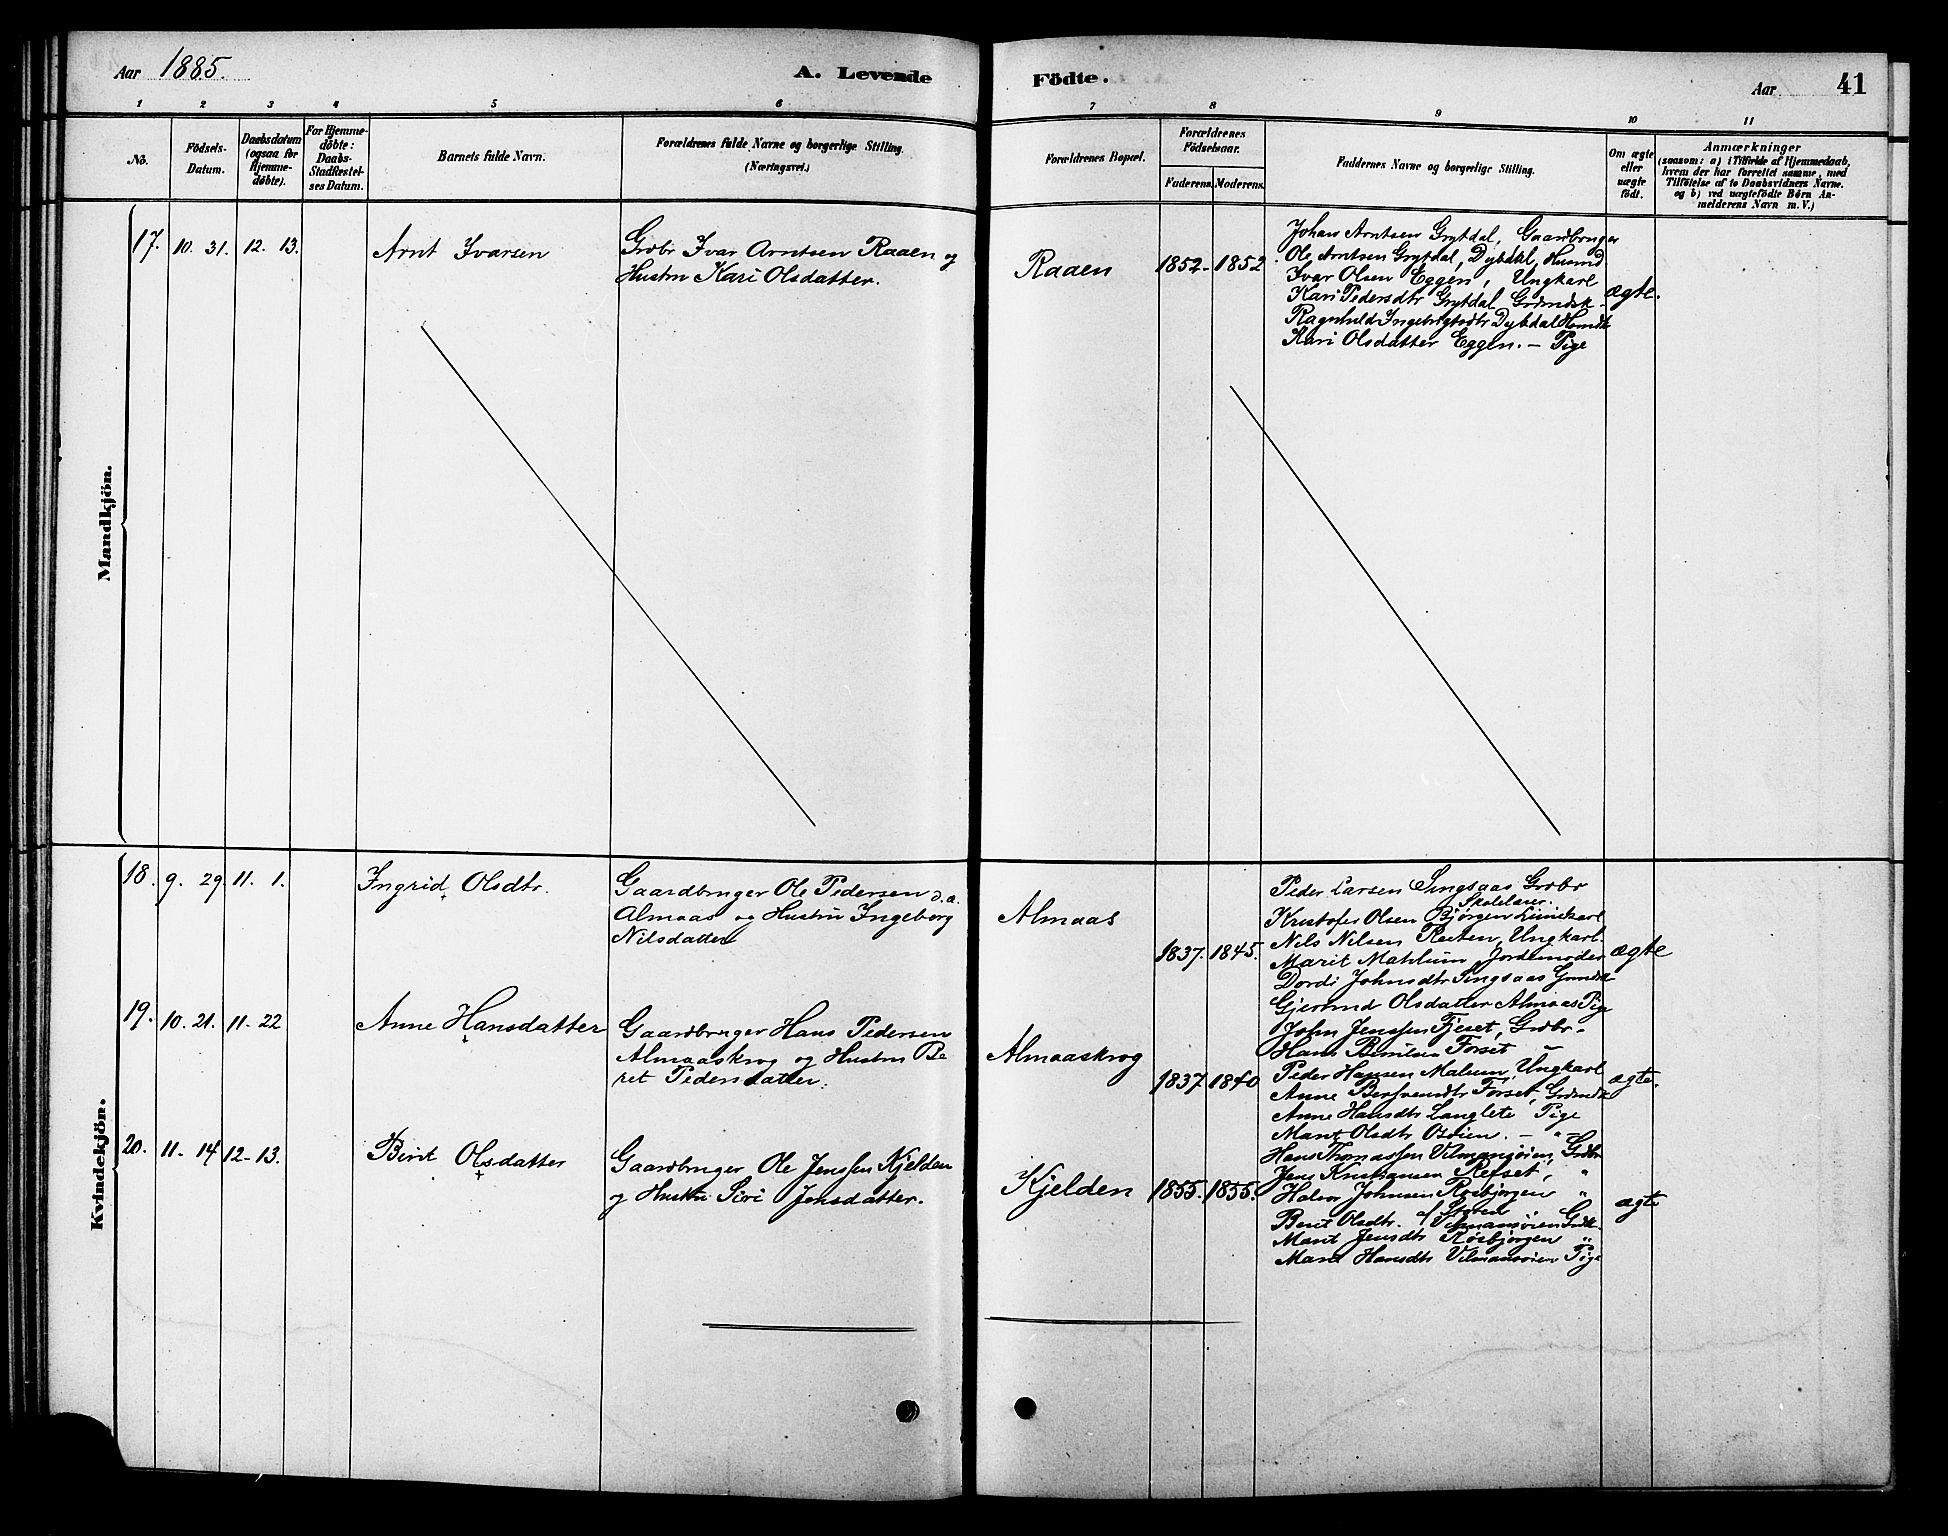 Aar 1885.
A. Levende
Födte.
Aar
41
1 2 3 4 5 6 7 8 9 10 11
No.
Födsels-
Datum.
Daabsdatum
(ogsaa for
Hjemme-
döbte).
For Hjemme-
döbte:
Daabs-
Stadfæstel-
ses Datum.
Barnets fulde Navn.
Forældrenes fulde Navne og borgerlige Stilling.
(Næringsvei.)
Forældrenes Bopæl.
Forældrenes
Födselsaar.
Faderens. Moderens.
Faddernes Navne og borgerlige Stilling.
Om ægte
eller
uægte
födt.
Anmærkninger
(saasom: a) i Tilfælde af Hjemmedaab,
hvem der har forrettet samme, med
Tilföielse af to Daabsvidners Navne.
og b) ved uægtefödte Börn An-
melderens Navn m. V.)
Mandkjön.
17. 10. 31. 12. 13. Arnt Ivarsen
Grbr Ivar Arntsen Raaen og
Hustru Kari Olsdatter.
Raaen 1852. 1852.
Johan Arntsen Grytdal, Gaardbruger
Ole Arntsen Grytdal, Dybdal, Husmd.
Ivar Olsen Eggen, Ungkarl
Kari Pedersdtr Grytdal, Grdmdsk
Ragnhild Ingebrigtsdtr Dybdal Hsmdk
Kari Olsdatter Eggen. — Pige
ægte.
Kvindekjön.
18. 9. 29. 11. 1. Ingrid Olsdtr.
Gaardbruger Ole Pedersen d.a.
Almaas og Hustru Ingeborg
Nilsdatter
Almaas 1837. 1845.
Peder Larsen Singsaas Grbr
Skolelærer.
Kristofer Olsen Bjørgen
Nils Nilsen Reeten, Ungkarl.
Marit Mahlum, Jordemoder
Dordi Johnsdtr Singsaas Grmdk
Gjertrud Olsdatter Almaas Pige
ægte
19. 10. 21. 11. 22 Anne Hansdatter
Gaardbruger Hans Pedersen
Almaaskrog og Hustru Be
ret Pedersdatter.
Almaaskrog 1837 1840
John Jenssen Fjeset, Grbr.
Hans Forset —
Peder Hansen Malum, Ungkarl
Anne Forset, Grdmdk
Anne Hansdtr Langlete Pige
Marit Olsdtr Osøien. — " —
ægte.
20. 11. 14 12. 13. Berit Olsdatter
Gaardbruger Ole Jenssen Kjelden
og Hustru Siri Jensdatter.
Kjelden 1855. 1855.
Hans Thomassen Vilmansøien, Grbr
Jens Kristiansen Refset, "
Halvor Johnsen Røsbjørgen "
af Støren
Berit Olsdtr. Vilmansøien Grdk.
Marit Jensdtr Røsbjørgen "
Marit Hansdtr Vilmansøien Pige
ægte